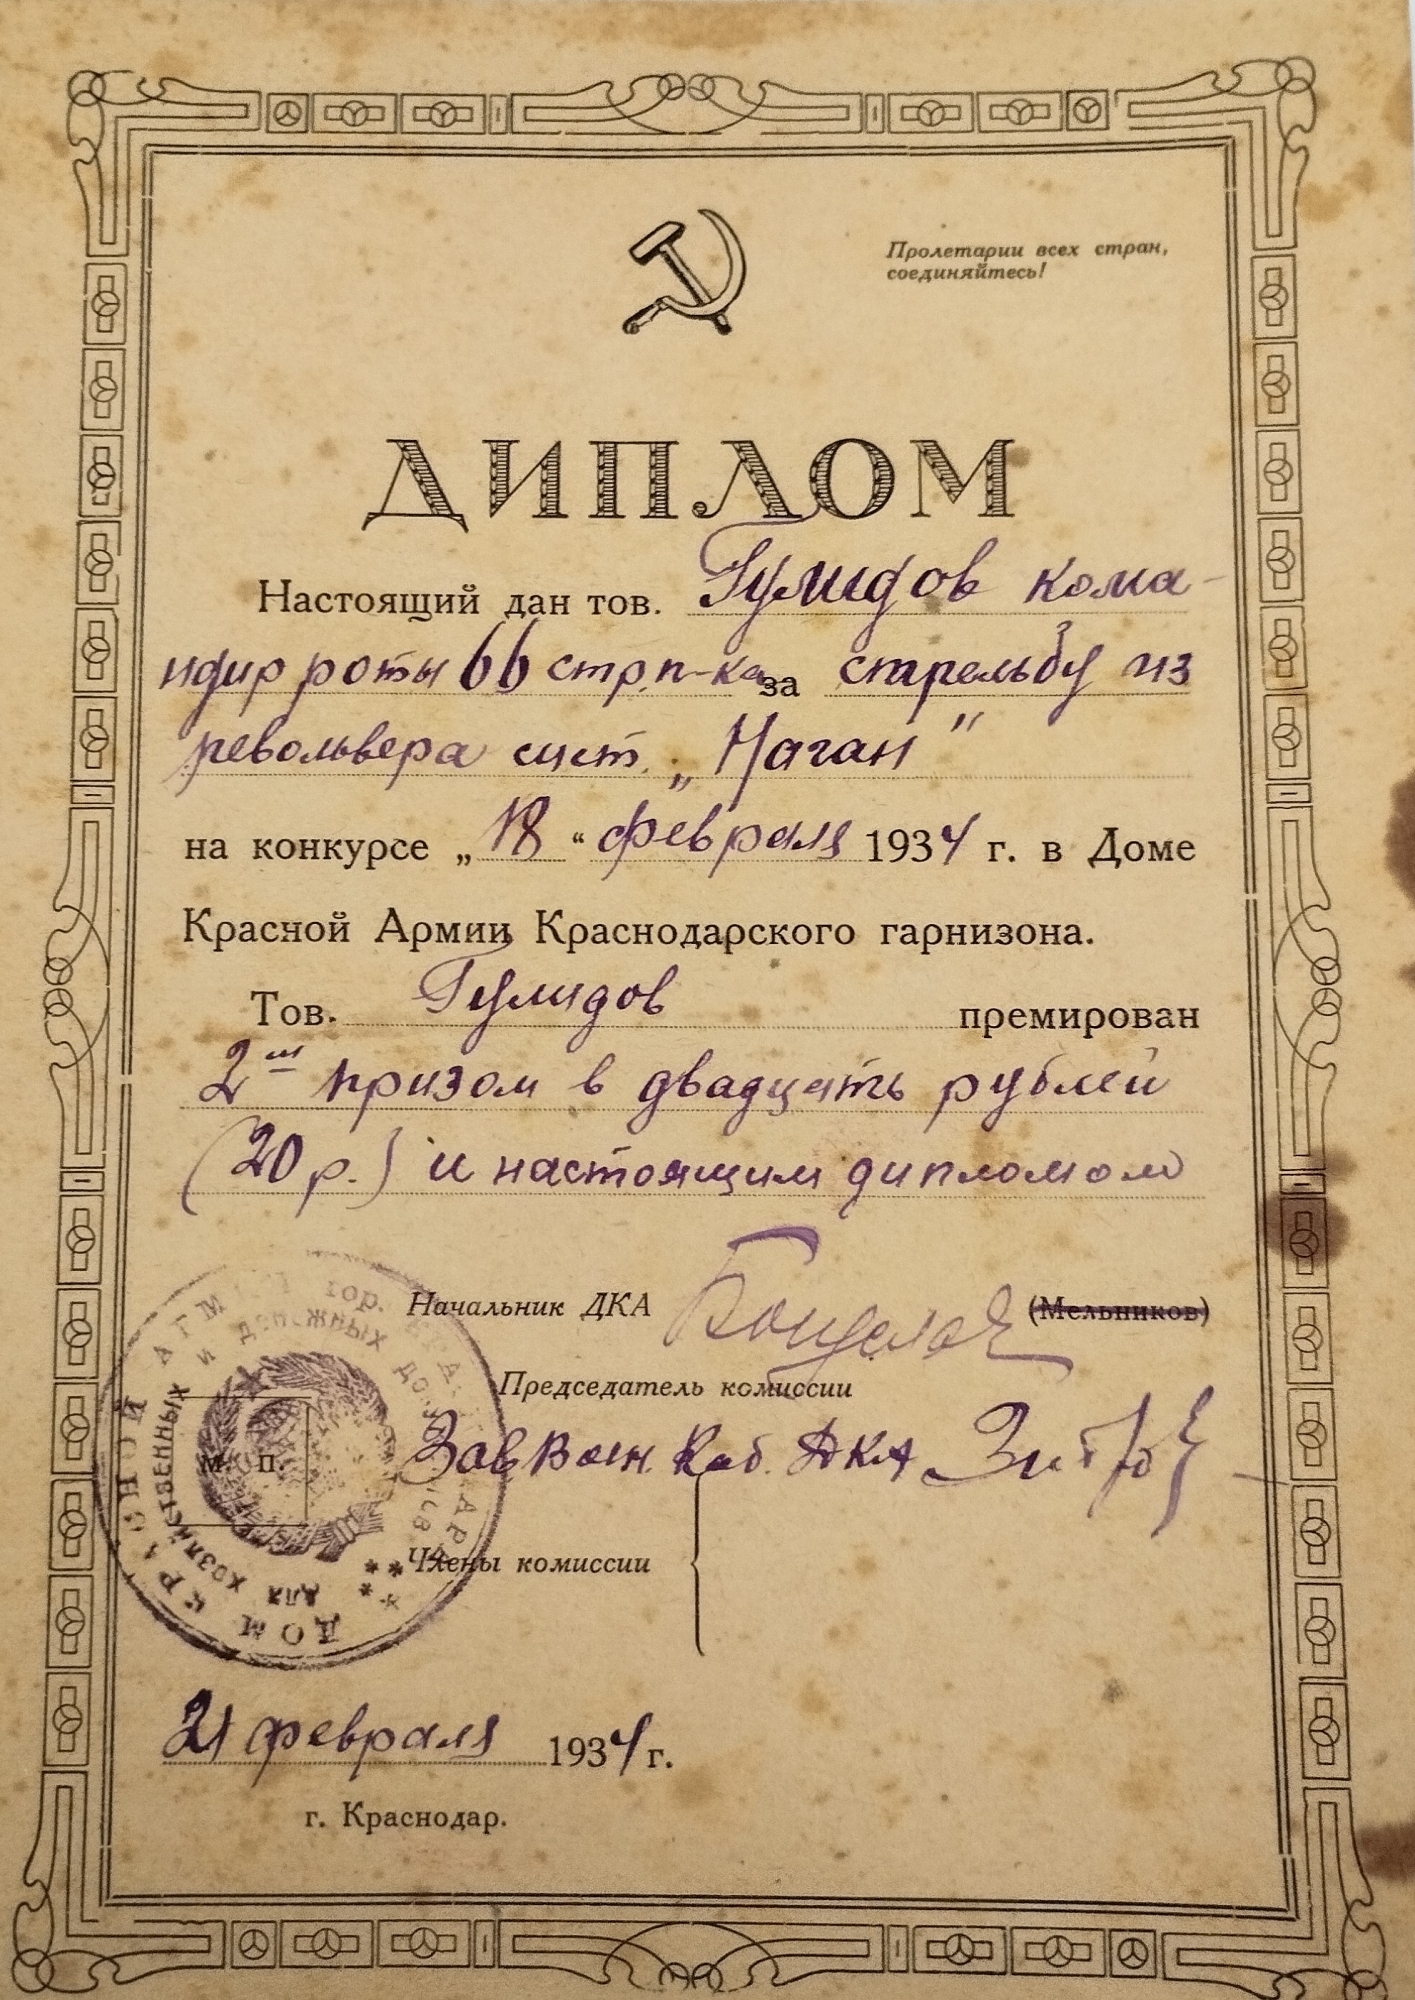 Пролетарии всех стран,
соединяйтесь!
ДИПЛОМ
Настоящий дан тов. Гулидов кома-
ндир роты 66 стр. п-ка за стрельбу из
револьвера сист. „Наган"
на конкурсе „18“ февраля 1934 г. в Доме
Красной Армии Краснодарского гарнизона.
Тов. Гулидов премирован
2м призом в двадцать рублей
(20 р.) и настоящим дипломом
Начальник ДКА (Мельников)
Председатель комиссии
Зав Воен. Каб. ДКА
м. п.
Члены комиссии
ДОМ КРАСНОЙ АРМИИ гор.
для хозяйственных и денежных
21 февраля 1934 г.
г. Краснодар.